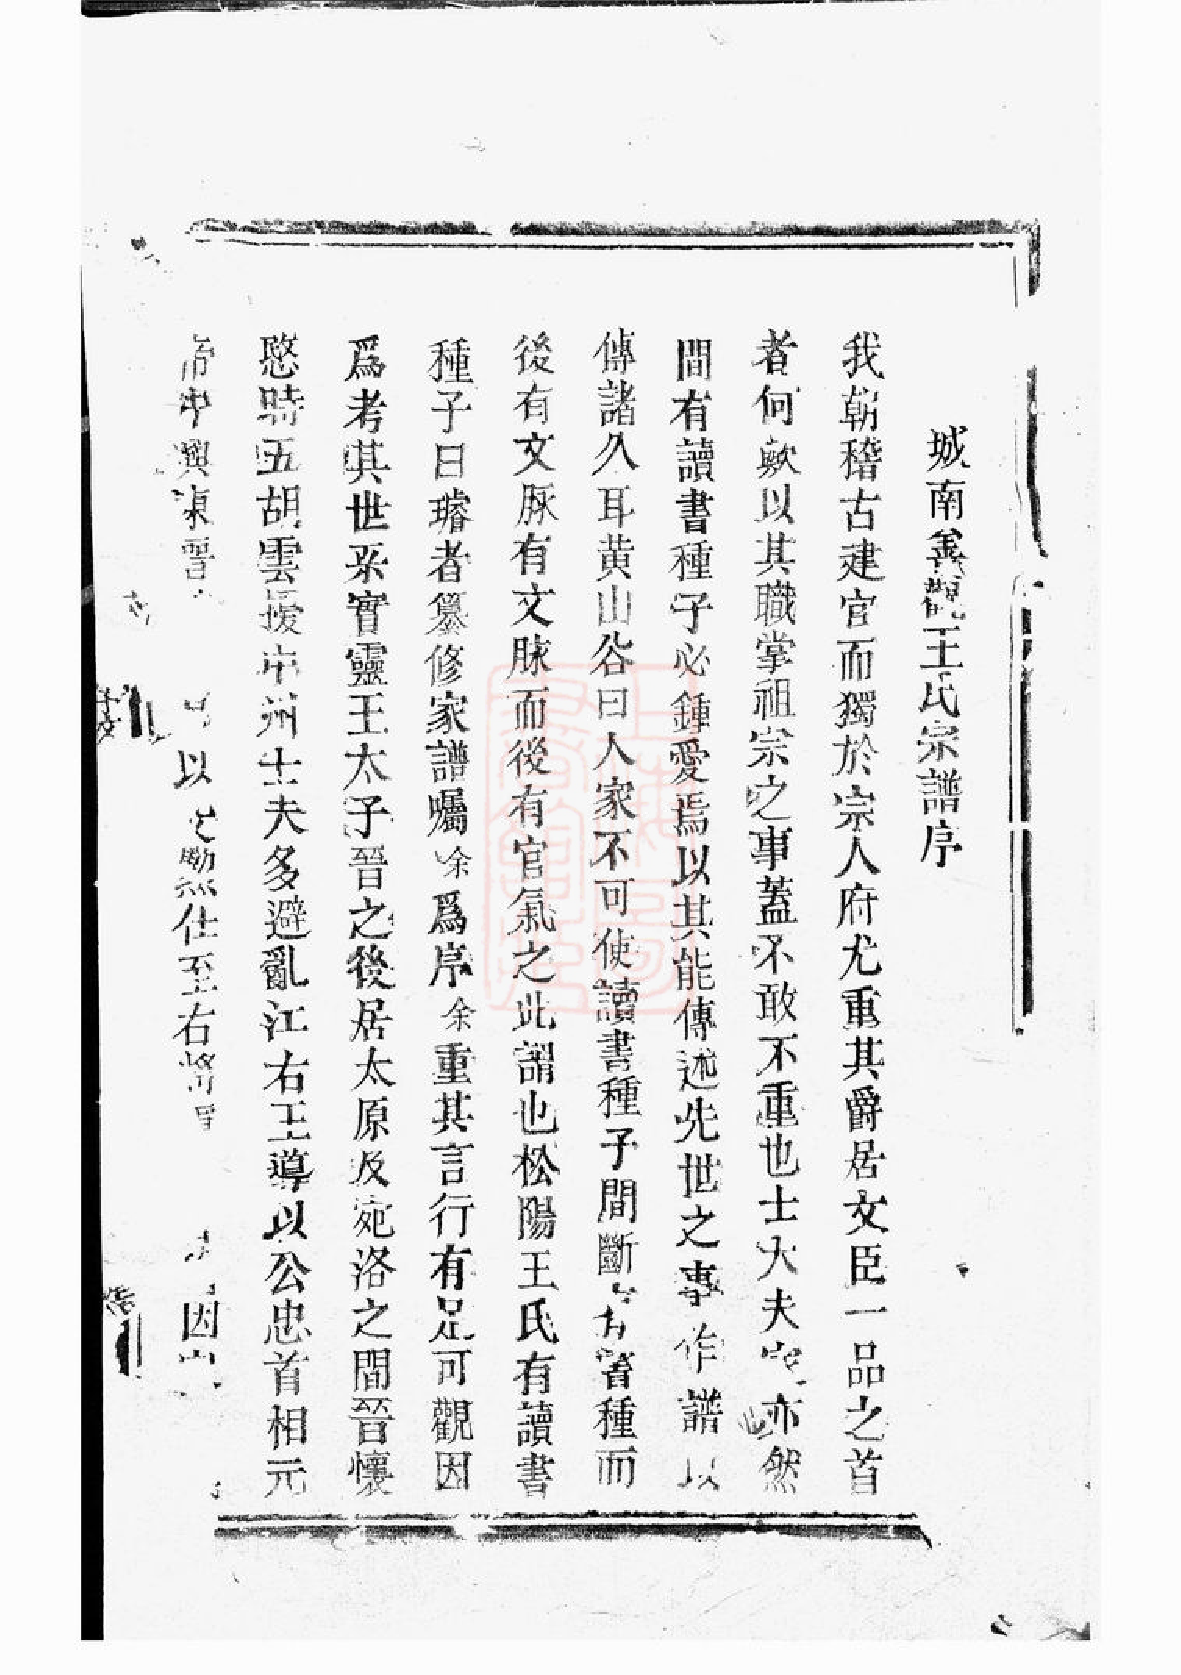 城南善觀王氏宗譜序
我朝稽古建官而獨於宗人府尤重其爵居文臣一品之首
者何歟以其職掌祖宗之事蓋不敢不重也士大夫家亦然
間有讀書種子必鍾愛焉以其能傳述先世之事作譜以
傳諸久耳黄山谷曰人家不可使讀書種子間斷有書種而
後有文脉有文脉而後有官氣之此謂也松陽王氏有讀書
種子曰璿者纂修家譜囑余爲序余重其言行有足可觀因
爲考其世系實靈王太子晉之後居太原及宛洛之間晉懷
愍時五胡雲擾中州士夫多避亂江右王導以公忠首相元
帝中興東晉 以 仕至右將軍 因